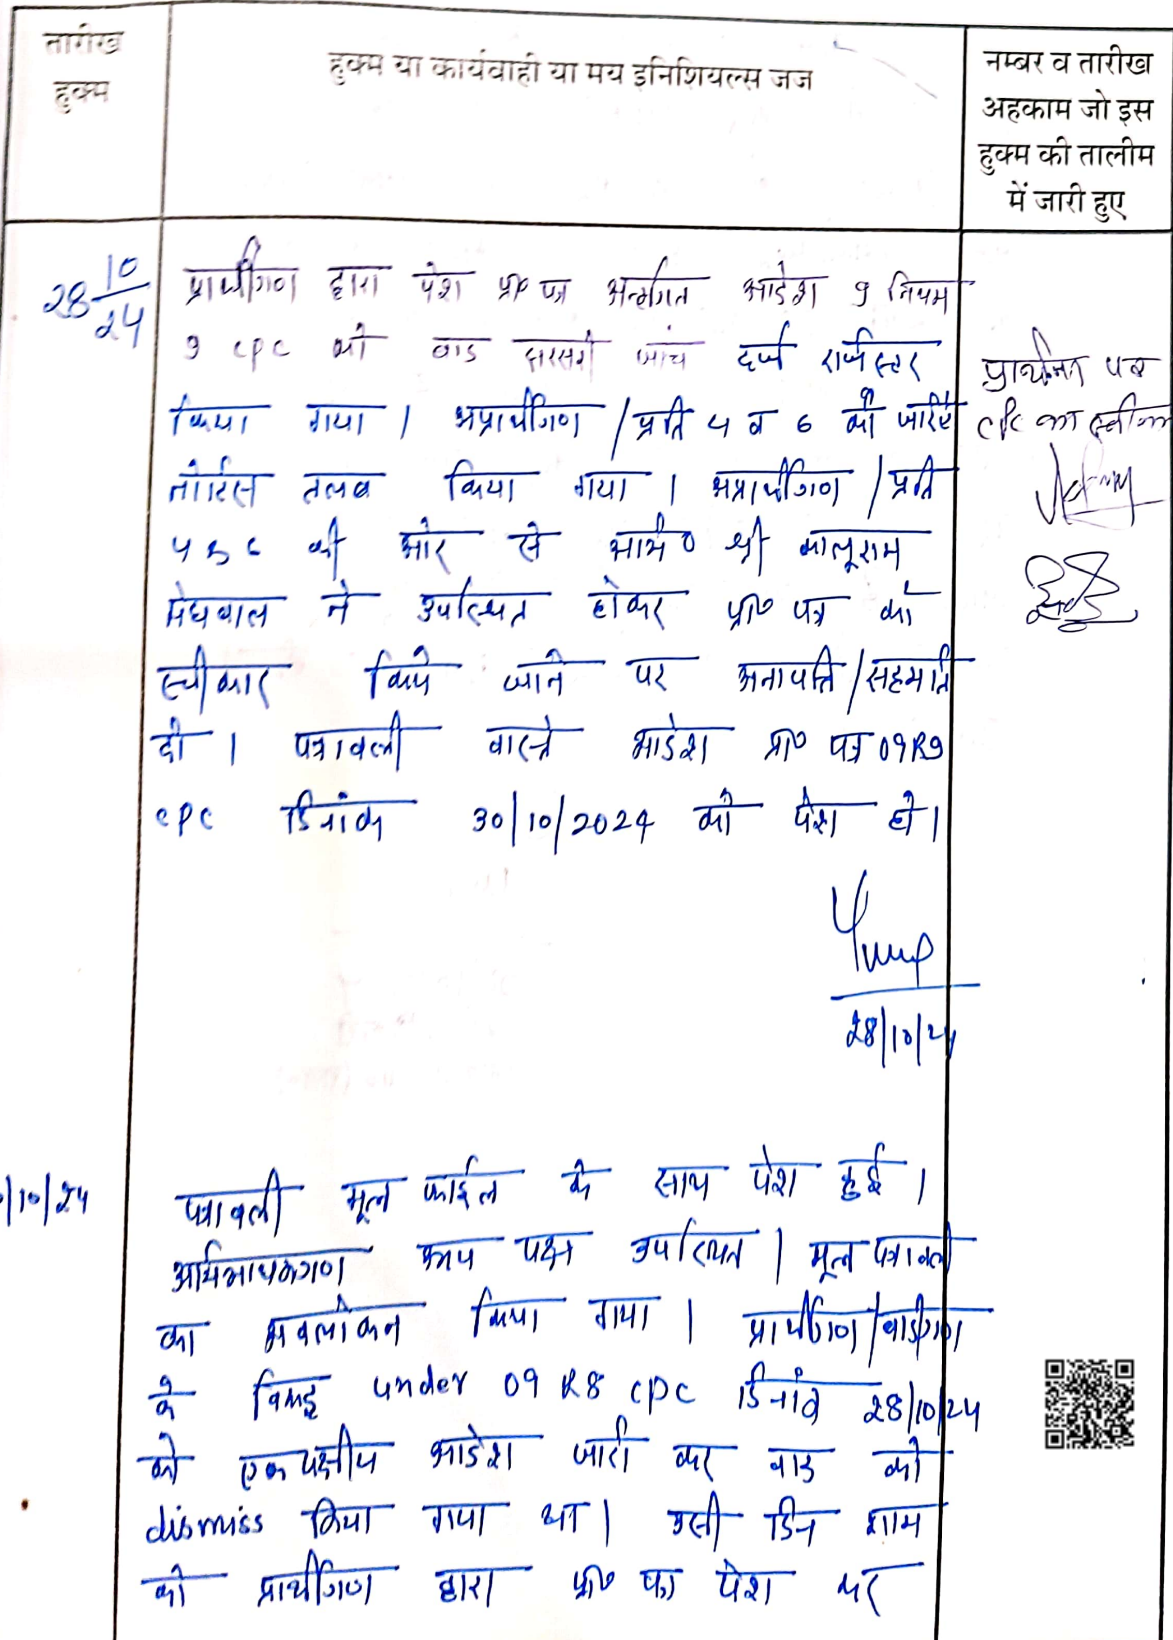 तारीख
हुक्म
हुक्म या कार्यवाही या मय इनिशियल्स जज
नम्बर व तारीख
अहकाम जो इस
हुक्म की तालीम
में जारी हुए
28 10/24
प्रार्थीगण द्वारा पेश प्रा० पत्र अन्तर्गत आदेश 9 नियम
9 CPC को बाद सरसरी जांच दर्ज रजिस्टर
किया गया । अप्रार्थीगण / प्रति 4 व 6 को जरिए
नोटिस तलब किया गया । अप्रार्थीगण / प्रति
4 व 6 की ओर से अभि० श्री कालूराम
मेघवाल ने उपस्थित होकर प्रा० पत्र को
स्वीकार किये जाने पर अनापत्ति / सहमति
दी । पत्रावली वास्ते आदेश प्रा० पत्र 09R9
CPC दिनांक 30/10/2024 को पेश हो ।
28/10/24
प्रार्थना पत्र
CPC का
/10/24
पत्रावली मूल फाईल के साथ पेश हुई ।
अभिभाषकगण पक्ष उपस्थित । मूल पत्रावली
का अवलोकन किया गया । प्रार्थीगण / वादीगण
के विरुद्ध under 09 R8 CPC दिनांक 28/10/24
को एकपक्षीय आदेश जारी कर वाद को
dismiss किया गया था । उसी दिन शाम
को प्रार्थीगण द्वारा प्रा० पत्र पेश कर